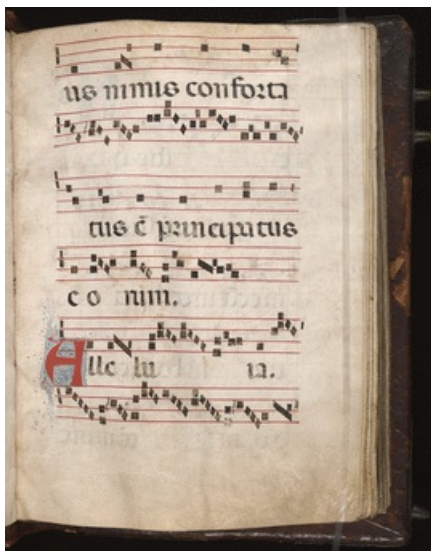 us nimis conforta
tus ē principatus
co rum.
Alle lu ia.